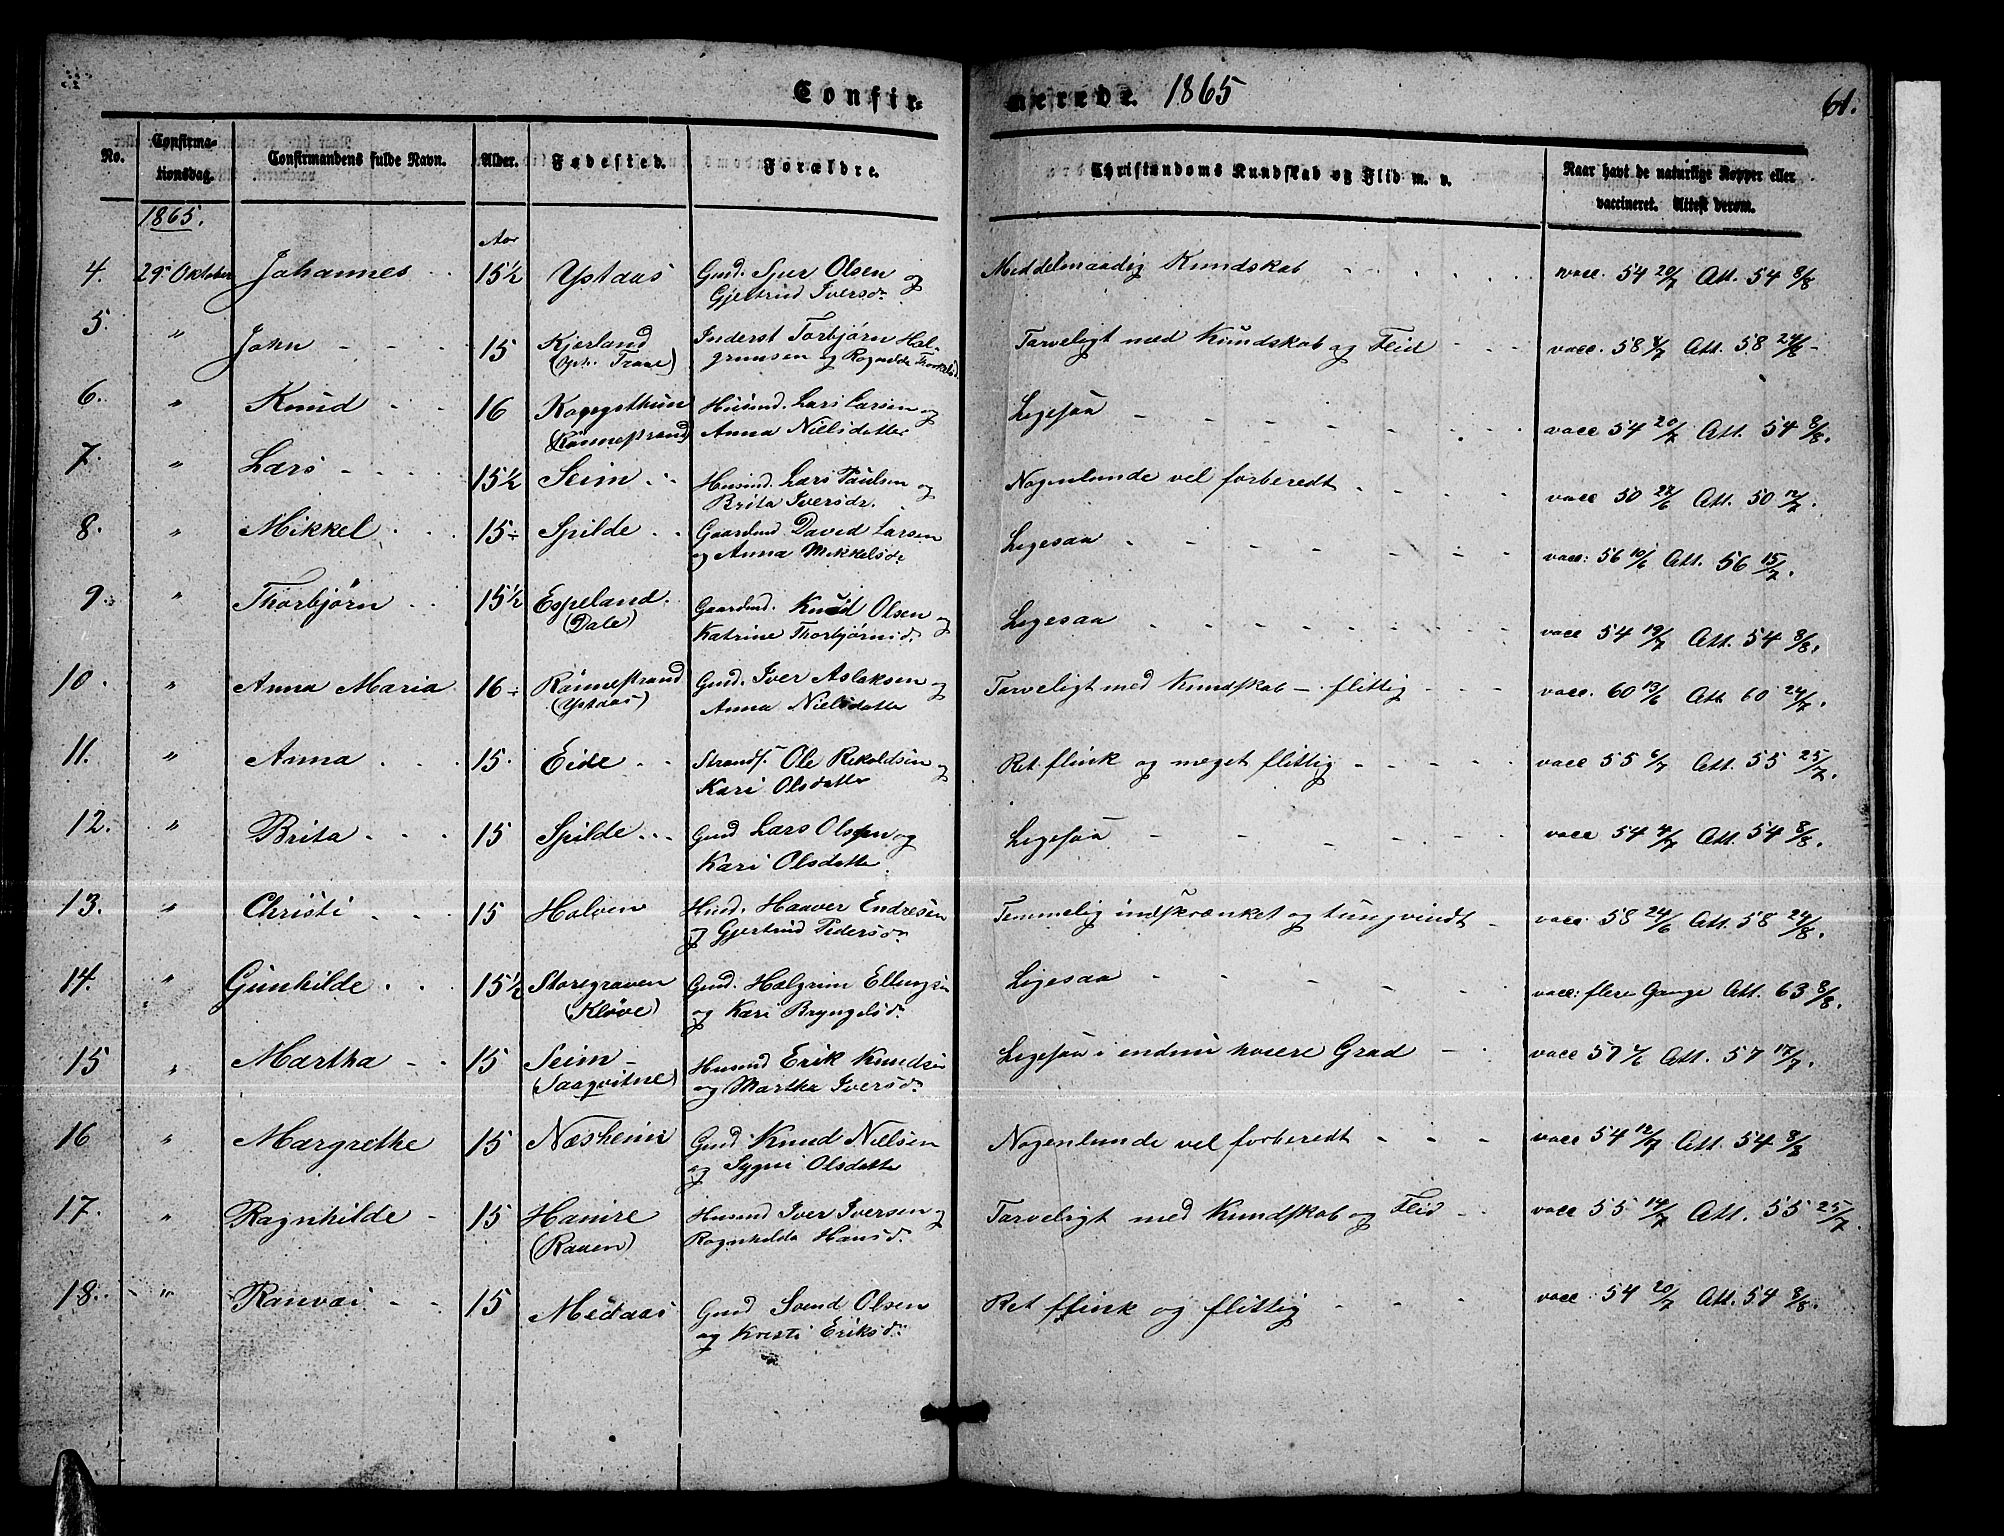 Confir-
merede. 1865
61.
No.
Confirma-
tionsdag.
Confirmandens fulde Navn.
Alder.
Fødested.
Forældre.
Christendoms Kundskab og Flid m. v.
Naar havt de naturlige Kopper eller
vaccineret. Attest derom.
1865.
Aar
4. 29de Oktober Johannes 15½ Ystaas Gmd. Sjur Olsen og Middelmaadig Kundskab vacc. 54 20/7 Att. 54 8/8
Gjertrud Iversdr.
5. " John 15 Kjerland Inderst Torbjørn Hal- Tarveligt med Kundskab og Flid vacc. 58 Att. 58 24/8
(Oph. Traae) grimsen og Ragnilde Thorkelsd.
6. " Knud 16 Husmd. Lars Larsen og Ligesaa vacc 54 20/7 Att. 54 8/8.
(Rønnestrand) Anna Nielsdatter
7. " Lars 15½ Seim Husmd. Lars Paulsen og Nogenlunde vel forberedt vacc 50 Att. 50 17/7.
Brita Iversdr.
8. " Mikkel 15 Spilde Gaardmd David Larsen Ligesaa vacc: 56 10/6 Att. 56 15/7.
og Anna Mikkelsdr
9. " Thorbjörn 15½ Espeland Gaardmd. Knud Olsen og Ligesaa vacc 54 19/7 Att. 54 8/8.
(Dale) Katrine Thorbjørnsd.
10. " Anna Maria 16 Rønnestrand Gmd. Iver Aslaksen og Tarveligt med Kundskab – flittig vacc. 60 13/6 Att 60 24/7.
(Ystaas) Anna Nielsdatter
11. " Anna 15. Eide Strands. Ole Rikoldsen og Ret flink og meget flittig vacc 55 6/7 Att. 55 25/7.
Kari Olsdatter
12. " Brita 15 Spilde Gmd Lars Olsen og Ligesaa vacc 54 4/7 Att. 54 8/8.
Kari Olsdatter
13. " Christi 15 Holven Hmd. Haaver Endresen Temmelig indskrænket og tungvindt vacc 58 24/6 Att. 58 24/8.
og Gjertrud Pedersdr
14. " Gunhilde 15½ Storegraven Gmd. Halgrim Ellingsen Ligesaa vacc: flere Gange Att. 63 8/8.
(Kløve) og Kari Bryngelsd.
15 " Martha 15 Seim Husmd Erik Knudsen Ligesaa i endnu høiere Grad vacc 57 Att. 57 17/7.
(Saaqvitne) og Martha Iversd.
16 " Margrethe 15 Næsheim Gmd. Knud Nielsen Nogenlunde vel forberedt vacc 54 12/7 Att. 54 8/8
og Sygni Olsdatter
17. " Ragnhilde 15 Hamre Husmd Iver Iversen og Tarveligt med Kundskab og Flid vacc 55 14/7 Att. 55 25/7.
(Raaen) Ragnhilda Hansd.
18. " Ranvei 15 Medaas Gmd Svend Olsen Ret flink og flittig vacc 54 20/7 Att. 54 8/8.
og Kristi Eriksd.